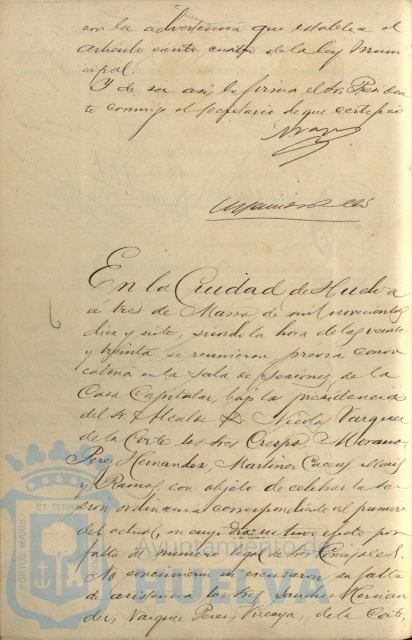 con la advertencia que establece el
artículo ciento cuatro de la ley Muni
cipal.
Y de ser así, lo firma el Sr. Presiden
te conmigo el Secretario de que certifico
En la Ciudad de Huelva
á tres de Marzo de mil novecientos
diez y siete, siendo la hora de las veinte
y treinta se reunieron previa convo
catoria en la Sala de sesiones de la
Casa Capitular, bajo la presidencia
del Sr. Alcalde D. Nicolás Vazquez
de la Corte los Sres Crespo, Morano,
Perez Hernandez, Martinez
y Ramos, con objeto de celebrar la se
sión ordinaria correspondiente al primero
del actual, en cuyo dia no tuvo efecto por
falta de número legal de Sres Concejales.
No concurrieron ni excusaron su falta
de asistencia los Sres Sanchez Hernan
dez, Vazquez Perez, Vizcaya, de la Corte,
Ayuntamiento de
HUELVA
PORTUS MARIS ET TERRAE